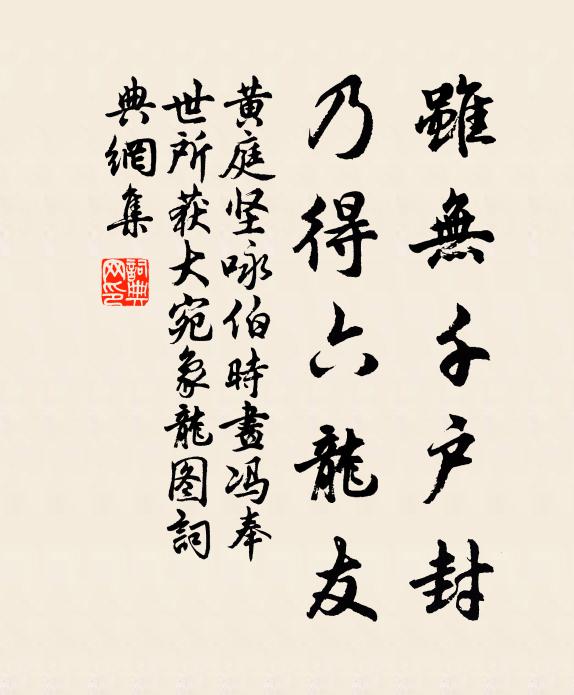 雖無千户封
乃得六龍友
黄庭坚咏伯時畫冯奉
世所获大宛象龍图詞
典網集
詞典
网印